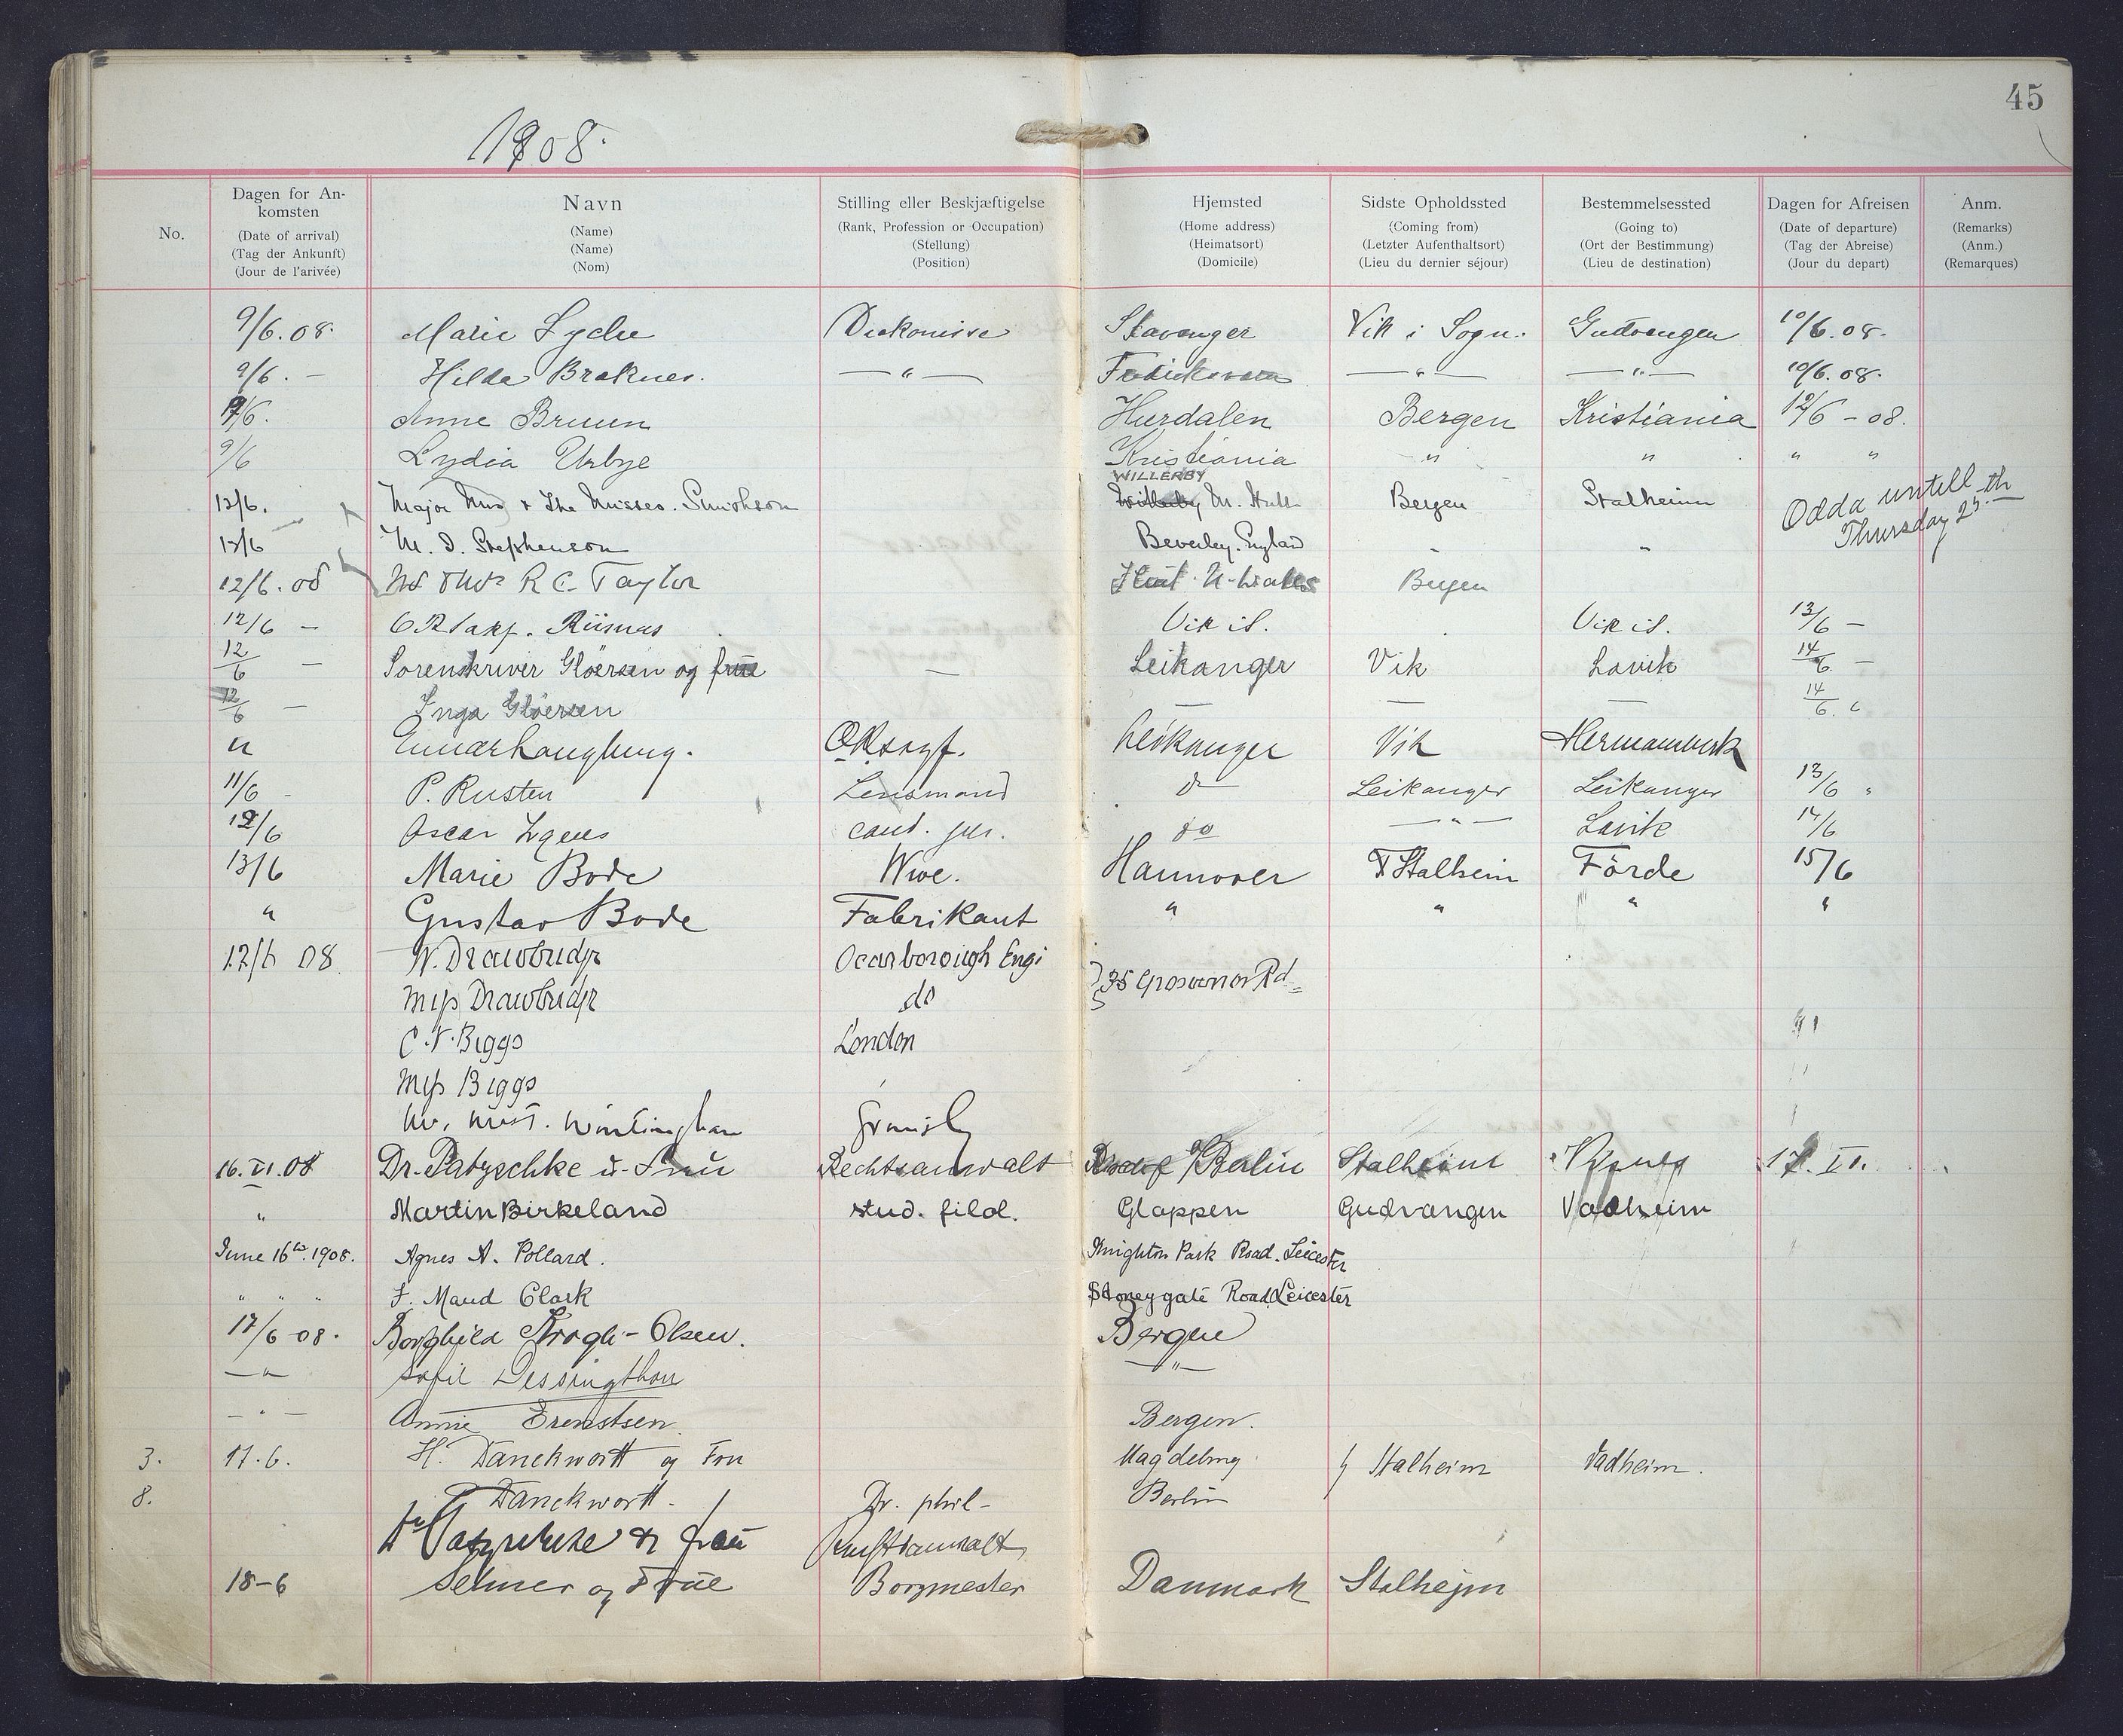 45
1908.
No. Dagen for An-komsten (Date of arrival) (Tag der Ankunft) (Jour de l'arivée) Navn (Name) (Name) (Nom) Stilling eller Beskjæftigelse (Rank, Profession or Occupation) (Stellung) (Position) Hjemsted (Home address) (Heimatsort) (Domicile) Sidste Opholdssted (Coming from) (Letzter Aufenthaltsort) (Lieu du dernier séjour) Bestemmelsessted (Going to) (Ort der Bestimmung) (Lieu de destination) Dagen for Afreisen (Date of departure) (Tag der Abreise) (Jour du depart) Anm. (Remarks) (Anm.) (Remarques)
9/6.08. Marie Lyche Diakonisse Stavanger Vik i Sogn. Gudvangen 10/6.08.
9/6. — Hilda Braknes. —"— —"— —"— 10/6.08.
9/6. Anne Bruun Hurdalen Bergen Kristiania 12/6 – 08.
9/6 Lydia Urbye Kristiania " " " "
WILLERBY
13/6. Major Mrs & The Misses. Bergen Stalheim Odda untill
13/6 M. D. Stephenson Beverley. England " " Thursday 25th
12/6.08 R C. Taylor Bergen
12/6 — O.R.sakf. Vik i S. Vik i S. 13/6 —
12/6 — Sorenskriver Gløersen og frue — Leikanger Vik Lavik 14/6 —
12/6 — Inga Gløersen — — 14/6. "
" Leikanger Vik Hermansverk
11/6 - P. Rusten Lensmand do Leikanger Leikanger 13/6 "
12/6 Oscar cand. jur. do —"— Lavik 14/6
13/6 Marie Bode Wwe. Hannover Stalheim Förde 15/6
" Gustav Bode Fabrikant " " " "
12/6 08 W. Drawbridge Scarborough Engl 35 Grosvenor Rd
Miss Drawbridge do
Biggs London
Miss Biggs
Grimsby
16.VI.08 Dr. Patzschke u. Frau Rechtsanwalt Berlin Stalheim 17. VI.
" Martin Birkeland stud. filol. Gloppen Gudvangen Vadheim
June 16th. 1908. Agnes A. Pollard. Knighton Park Road. Leicester
" " " F. Maud Clark Stoneygate Road, Leicester
17/6 08. Borghild Krogh-Olsen. Bergen
—"— Sofie Dessingthon —"—
—"— Annie Bergen.
3. 17.6. H. Danckwortt og Fru Magdeburg Stalheim Vadheim.
8. Danckwortt. Dr. phil. Berlin
Dr Patzschke & frau Rechtsanwalt
18-6 Selmer og Frue Borgmester Danmark Stalhejm